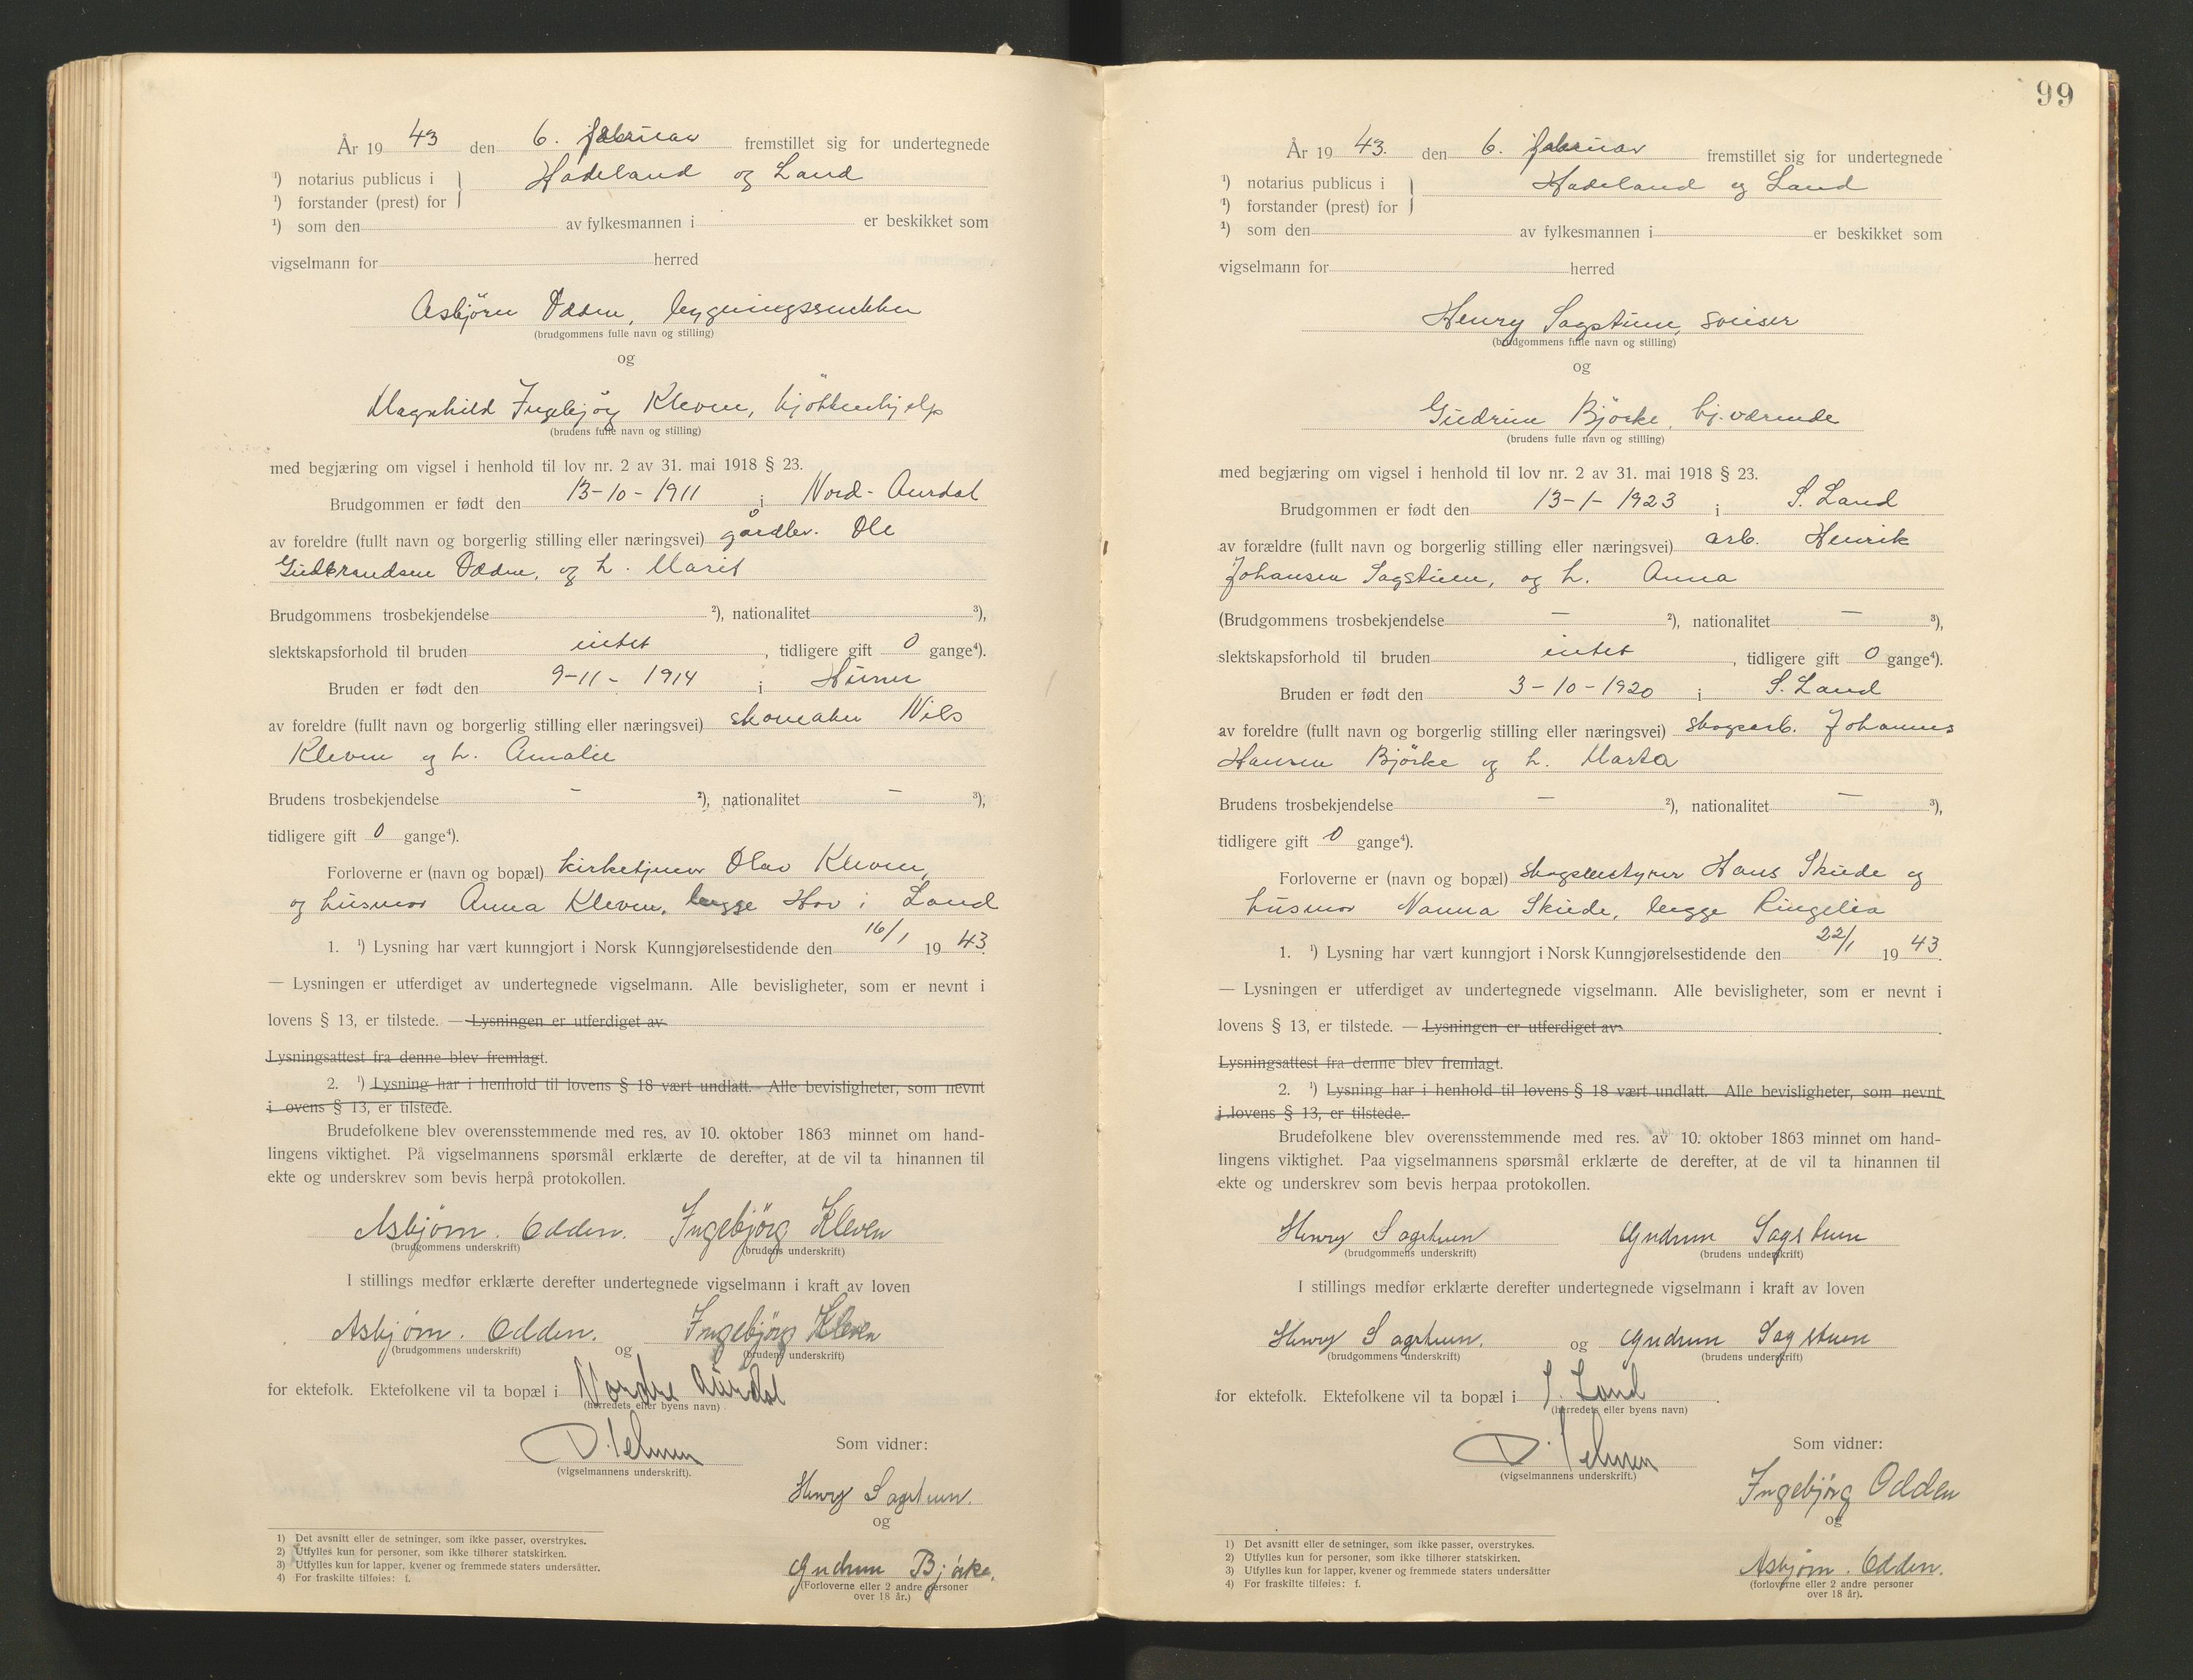 År 19 43 den 6. februar fremstillet sig for undertegnede
¹) notarius publicus i Hadeland og Land
¹) forstander (prest) for
¹) som den av fylkesmannen i er beskikket som
vigselmann for herred
Asbjörn Odden, bygningssnekker
(brudgommens fulle navn og stilling)
og
Magnhild Ingebjög Kleven, kjökkenhjelp
(brudens fulle navn og stilling)
med begjæring om vigsel i henhold til lov nr. 2 av 31. mai 1918 § 23.
Brudgommen er født den 13-10-1911 i Nord-Aurdal
av foreldre (fullt navn og borgerlig stilling eller næringsvei) gårdbr. Ole
Gudbrandsen Odden, og h. Marit
Brudgommens trosbekjendelse ²), nationalitet ³),
slektskapsforhold til bruden intet, tidligere gift 0 gange⁴).
Bruden er født den 9-11-1914 i Hurum
av foreldre (fullt navn og borgerlig stilling eller næringsvei) skomaker Nils
Kleven og h. Amalie
Brudens trosbekjendelse — ²), nationalitet — ³),
tidligere gift 0 gange⁴).
Forloverne er (navn og bopæl) kirketjener Olav Kleven,
og husmor Anna Kleven, begge Hov i Land
1. ¹) Lysning har vært kunngjort i Norsk Kunngjørelsestidende den 16/1 19 43.
— Lysningen er utferdiget av undertegnede vigselmann. Alle bevisligheter, som er nevnt i
lovens § 13, er tilstede. — Lysningen er utferdiget av
Lysningsattest fra denne blev fremlagt.
2. ¹) Lysning har i henhold til lovens § 18 vært undlatt. - Alle bevisligheter, som nevnt
i ovens § 13, er tilstede.
Brudefolkene blev overensstemmende med res. av 10. oktober 1863 minnet om hand-
lingens viktighet. På vigselmannens spørsmål erklærte de derefter, at de vil ta hinannen til
ekte og underskrev som bevis herpå protokollen.
Asbjørn. Odden. Ingebjörg Kleven
(brudgommens underskrift) (brudens underskrift)
I stillings medfør erklærte derefter undertegnede vigselmann i kraft av loven
Asbjørn. Odden. og Ingebjörg Kleven
(brudgommens underskrift) (brudens underskrift)
for ektefolk. Ektefolkene vil ta bopæl i Nordre Aurdal
(herredets eller byens navn)
(vigselmannens underskrift).
Som vidner:
Henry Sagstuen.
og
Gudrun Bjørke.
(Forloverne eller 2 andre personer
over 18 år.)
1) Det avsnitt eller de setninger, som ikke passer, overstrykes.
2) Utfylles kun for personer, som ikke tilhører statskirken.
3) Utfylles kun for lapper, kvener og fremmede staters undersåtter.
4) For fraskilte tilføies: f.
99
År 19 43. den 6. februar fremstillet sig for undertegnede
¹) notarius publicus i Hadeland og Land
¹) forstander (prest) for
¹) som den av fylkesmannen i er beskikket som
vigselmann for herred
Henry Sagstuen, sveiser
(brudgommens fulle navn og stilling)
og
Gudrun Bjørke, hj.værende
(brudens fulle navn og stilling)
med begjæring om vigsel i henhold til lov nr. 2 av 31. mai 1918 § 23.
Brudgommen er født den 13-1-1923 i S. Land
av forældre (fullt navn og borgerlig stilling eller næringsvei) arb. Henrik
Johansen Sagstuen, og h. Anna
(Brudgommens trosbekjendelse — ²), nationalitet — ³),
slektskapsforhold til bruden intet, tidligere gift 0 gange⁴).
Bruden er født den 3-10-1920 i S. Land
av foreldre (fullt navn og borgerlig stilling eller næringsvei) skogsarb. Johannes
Hansen Bjørke og h. Marta
Brudens trosbekjendelse — ²), nationalitet — ³),
tidligere gift 0 gange⁴).
Forloverne er (navn og bopæl) skogbestyrer Hans Skude og
husmor Nanna Skude, begge Ringelia
1. ¹) Lysning har vært kunngjort i Norsk Kunngjørelsestidende den 22/1 19 43.
— Lysningen er utferdiget av undertegnede vigselmann. Alle bevisligheter, som er nevnt i
lovens § 13, er tilstede. — Lysningen er utferdiget av
Lysningsattest fra denne blev fremlagt.
2. ¹) Lysning har i henhold til lovens § 18 vært undlatt. Alle bevisligheter, som nevnt
i lovens § 13, er tilstede.
Brudefolkene blev overensstemmende med res. av 10. oktober 1863 minnet om hand-
lingens viktighet. Paa vigselmannens spørsmål erklærte de derefter, at de vil ta hinannen til
ekte og underskrev som bevis herpaa protokollen.
Henry Sagstuen Gudrun Sagstuen
(brudgommens underskrift) (brudens underskrift)
I stillings medfør erklærte derefter undertegnede vigselmann i kraft av loven
Henry Sagstuen. og Gudrun Sagstuen
(brudgommens underskrift) (brudens underskrift)
for ektefolk. Ektefolkene vil ta bopæl i S. Land.
(herredets eller byens navn)
(vigselmannens underskrift.)
Som vidner:
Ingebjörg Odden
og
Asbjørn. Odden.
(forloverne eller 2 andre personer
over 18 år).
1) Det avsnitt eller de setninger, som ikke passer, overstrykes.
2) Utfylles kun for personer, som ikke tilhører statskirken.
3) Utfylles kun for lapper, kvener og fremmede staters undersåtter
4) For fraskilte tilføies: f.